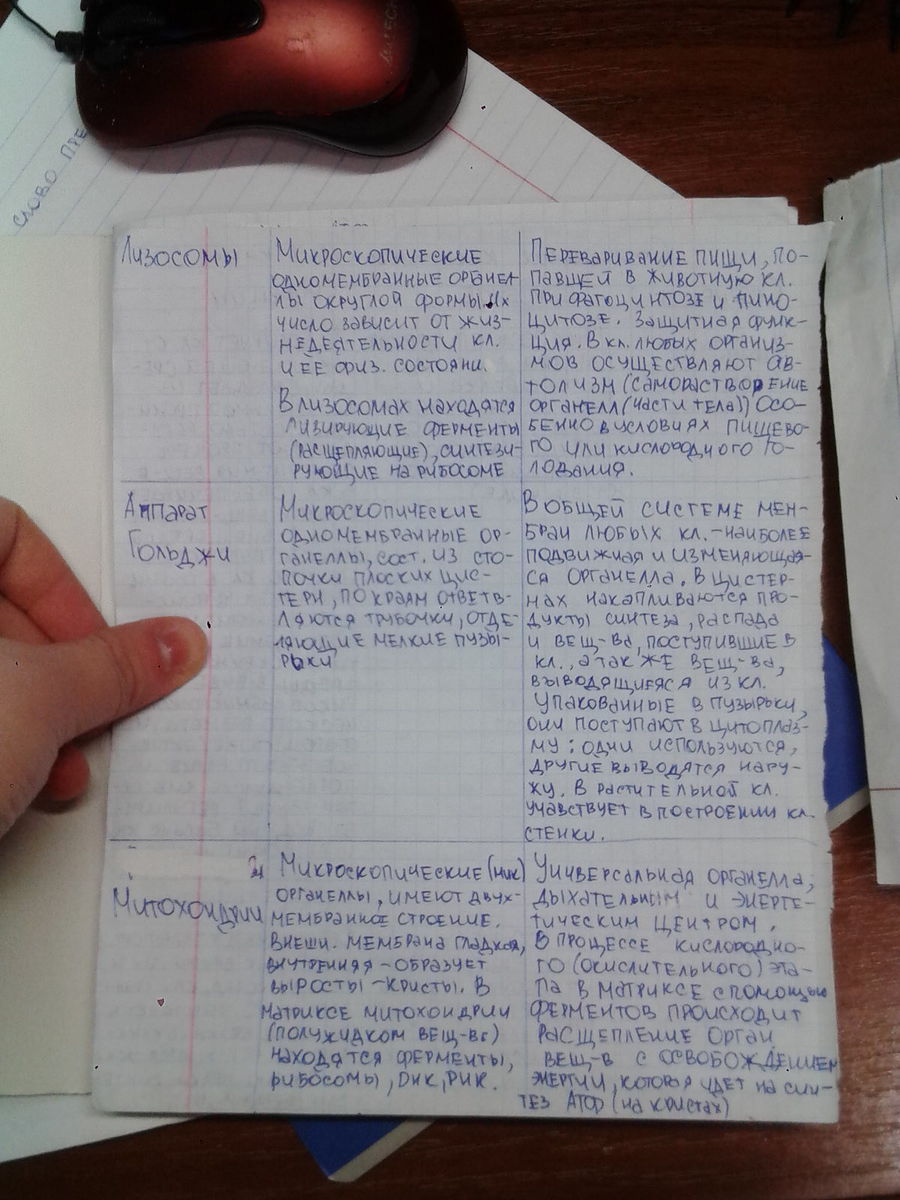 СЛОВО ПРЕ
Лизосомы
Микроскопические
одномембранные органел-
лы округлой формы. Их
число зависит от жиз-
недеятельности кл.
и её физ. состояни.
В лизосомах находятся
лизирующие ферменты
(расщепляющие), синтези-
рующие на рибосоме
Переваривание пищи, по-
павшей в животную кл.
при фагоцинтозе и пино-
цитозе. Защитная функ-
ция. В кл. любых организ-
мов осуществляют ав-
толизм (саморастворение
органелл (части тела)) осо-
бенно в условиях пищево-
го или кислородного го-
лодания.
Аппарат
Гольджи
Микроскопические
одномембранные ор-
ганеллы, сост. из сто-
почки плоских цис-
терн, по краям ответв-
ляются трубочки, отде-
ляющие мелкие пузы-
рьки
В общей системе мем-
бран любых кл. - наиболее
подвижная и изменяющая-
ся органелла. В цистер-
нах накапливаются про-
дукты синтеза, распада
и вещ-ва, поступившие в
кл., а так же вещ-ва,
выводящиеся из кл.
Упакованные в пузырьки,
они поступают в цитоплаз-
му: одни используются,
другие выводятся нару-
жу. В растительной кл.
учавствует в построении кл.
стенки.
Митохондрии
Микроскопические (мик)
органеллы, имеют двух-
мембранное строение.
Внешн. мембрана гладкая,
внутренняя - образует
выросты - кристы. В
матриксе митохондрии
(полужидком вещ-ве)
находятся ферменты,
рибосомы, ДНК, РНК.
Универсальная органелла,
дыхательным и энерге-
тическим центром.
В процессе кислородно-
го (окислительного) эта-
па в матриксе с помощью
ферментов происходит
расщепление орган
вещ-в с освобождением
энергии, которая идет на син-
тез АТФ (на кристах)